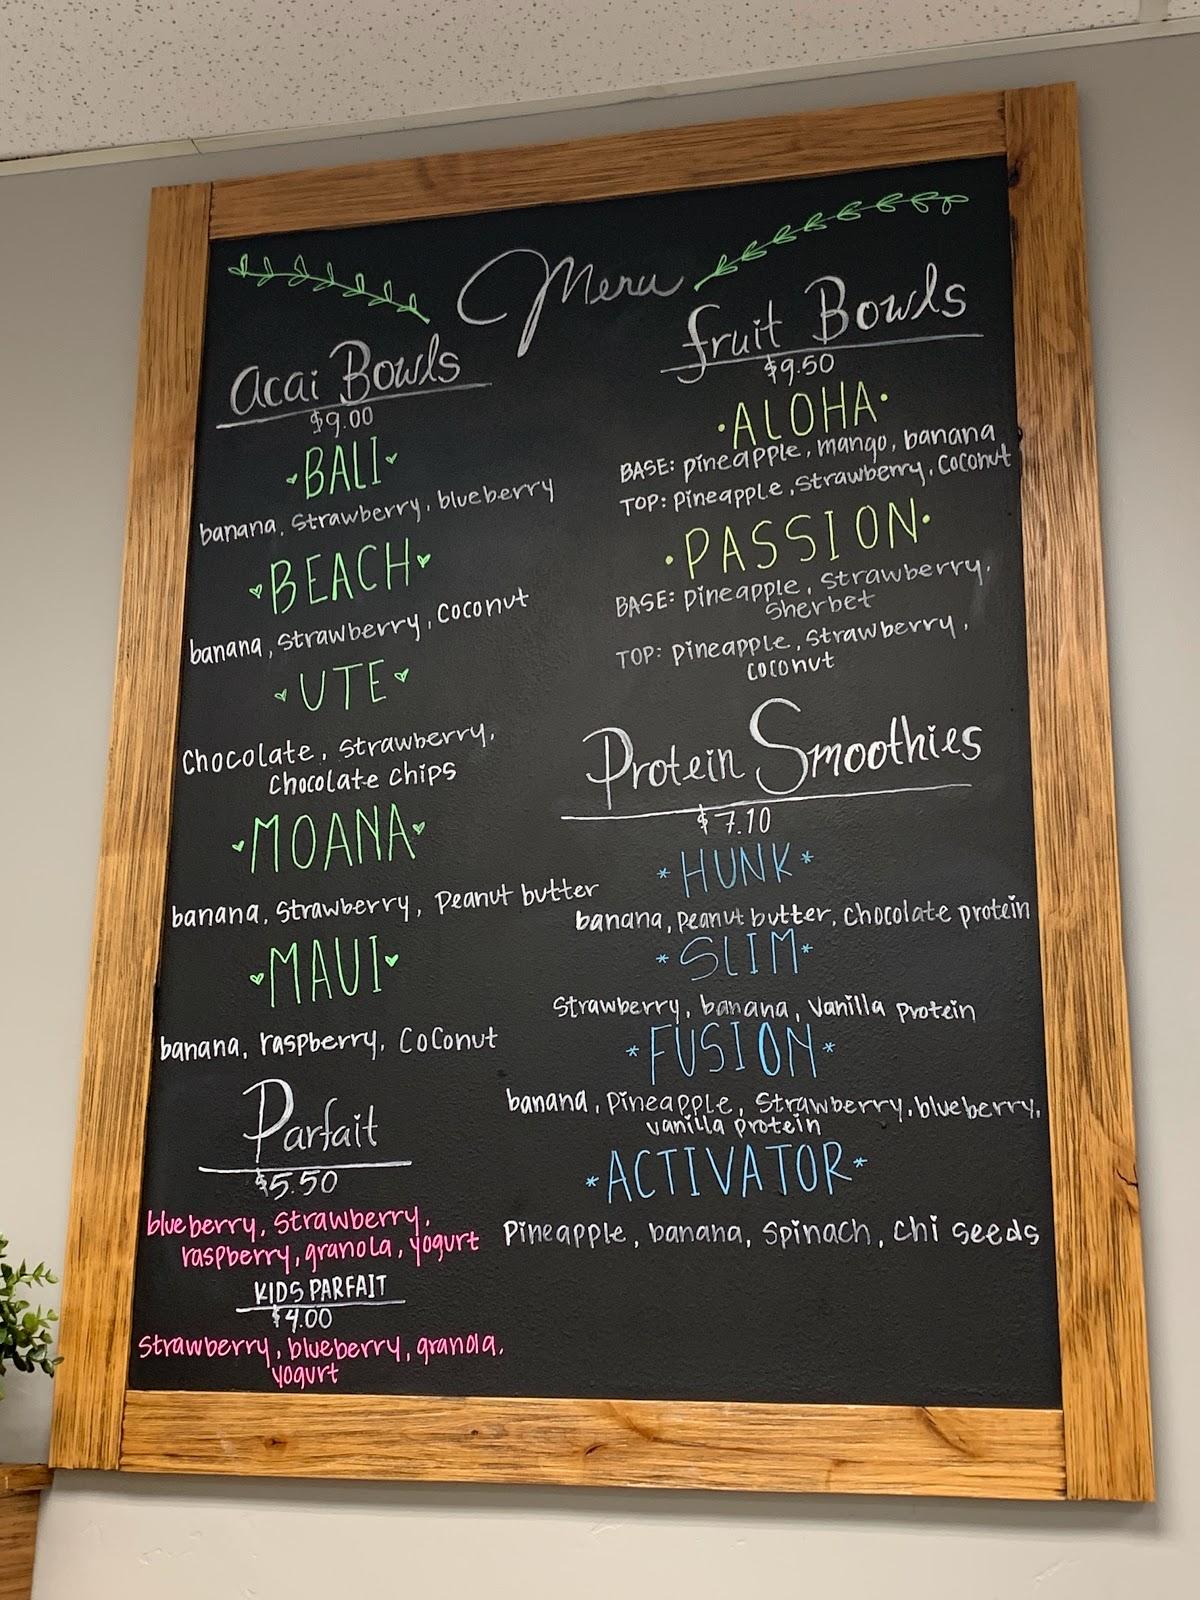 Menu
Acai Bowls
$9.00
BALI
banana, strawberry, blueberry
BEACH
banana, strawberry, coconut
UTE
Chocolate, strawberry,
chocolate chips
MOANA
banana, strawberry, peanut butter
MAUI
banana, raspberry, coconut
Parfait
$5.50
blueberry, strawberry,
raspberry, granola, yogurt
KIDS PARFAIT
$4.00
strawberry, blueberry, granola,
yogurt
fruit Bowls
$9.50
•ALOHA•
BASE: pineapple, mango, banana
TOP: pineapple, strawberry, coconut
•PASSION•
BASE: pineapple, strawberry,
sherbet
TOP: pineapple, strawberry,
coconut
Protein Smoothies
$7.10
*HUNK*
banana, peanut butter, chocolate protein
*SLIM*
strawberry, banana, vanilla protein
*FUSION*
banana, pineapple, strawberry, blueberry,
vanilla protein
*ACTIVATOR*
Pineapple, banana, spinach, chi seeds